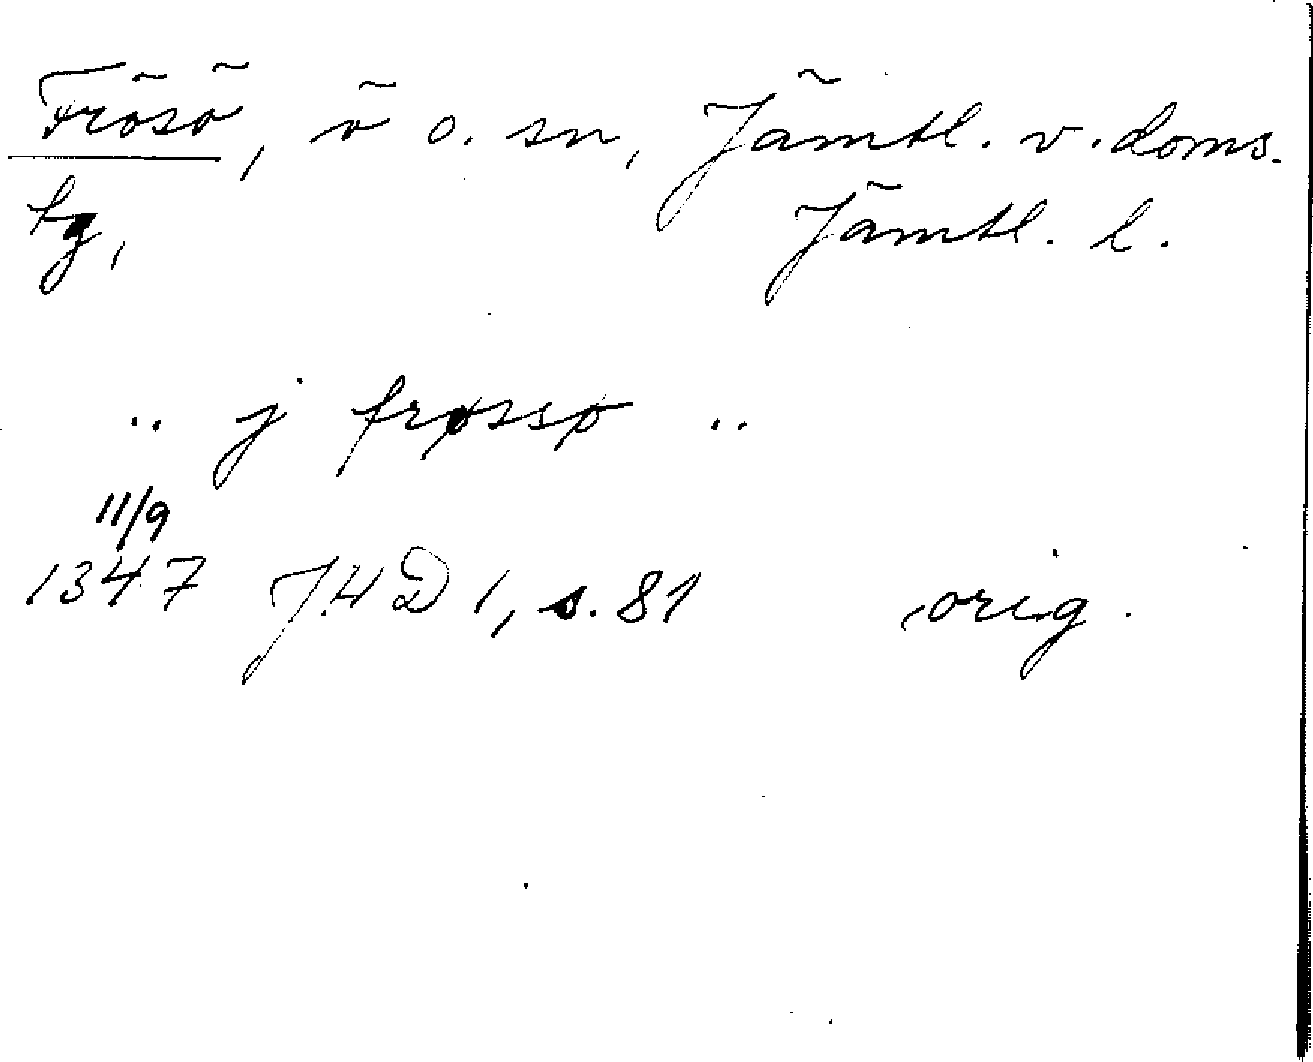 Frösö, ö o. sn, Jämtl. v. doms.
tg, Jämtl. l.
.. j frøssø ..
11/9
1347 JHD 1, s. 81 orig.